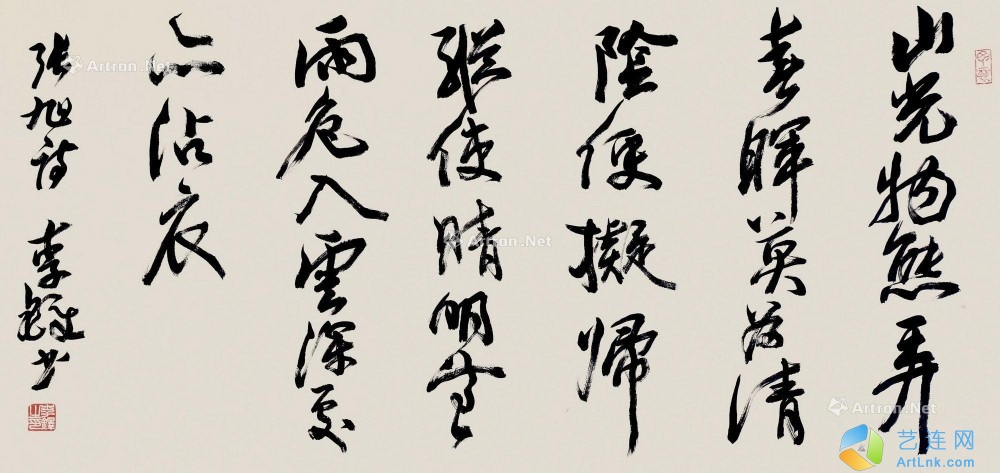 山光物態弄
春暉莫為清
陰便擬歸
縱使晴明無
雨色入雲深處
亦沾衣
張旭詩 李鐸書
Artron.Net
Artron.Net
Artron.Net
Artron.Net
Artron.Net
艺连网
ArtLnk.com